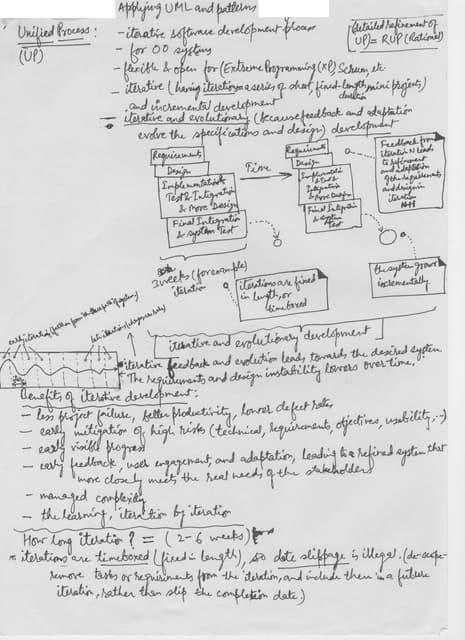 Applying UML and patterns
Unified Process:
(UP)
- iterative software development process
- for OO systems
- flexible & open for (Extreme Programming (XP), Scrum, etc
- iterative (having iterations a series of short, fixed-length, mini projects)
duration
and incremental development
- iterative and evolutionary (because feedback and adaptation
evolve the specifications and design) development
Detailed refinement of
UP = RUP (Rational)
Requirements
Design
Implementation &
Test & Integration
& More Design
Final Integration
& System Test
Time
Requirements
Design
Implementation
& Test &
Integration
& More Design
Final Integration
& System
Test
Feedback from
iteration N leads
to refinement
and adaptation
of the requirements
and design in
iteration
N+1
3 weeks (for example)
iteration
iterations are fixed
in length, or
timeboxed
the system grows
incrementally.
early iterations
late iterations
iterative and evolutionary development
* iterative feedback and evolution leads towards the desired system
* The requirements and design instability lowers over time...
Benefits of iterative development:
- less project failure, better productivity, lower defect rates
- early mitigation of high risks (technical, requirements, objectives, usability, ...)
- early visible progress
- early feedback, user engagement, and adaptation, leading to a refined system that
more closely meets the real needs of the stakeholders
- managed complexity
- the learning, iteration by iteration
How long iteration? = (2-6 weeks)
* iterations are timeboxed (fixed in length), so date slippage is illegal. (de-scope-
remove tasks or requirements from the iteration, and include them in a future
iteration, rather than slip the completion date.)